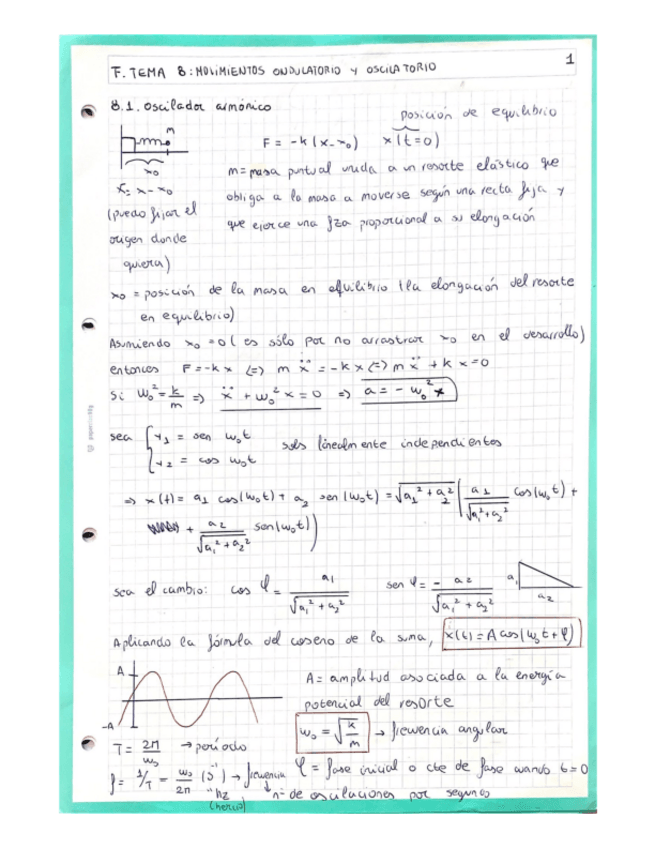 F. TEMA 8: MOVIMIENTOS ONDULATORIO Y OSCILATORIO
1
8.1. Oscilador armónico
posición de equilibrio
F = -k (x-x₀) x(t=0)
m
x₀
x = x - x₀
(puedo fijar el
origen donde
quiera)
m = masa puntual unida a un resorte elástico que
obliga a la masa a moverse según una recta fija y
que ejerce una fza proporcional a su elongación
x₀ = posición de la masa en equilibrio (la elongación del resorte
en equilibrio)
Asumiendo x₀ = 0 (es sólo por no arrastrar x₀ en el desarrollo)
entonces F = -kx <=> m ẍ = -kx <=> m ẍ + k x = 0
Si ω₀² = k/m => ẍ + ω₀² x = 0 => a = - ω₀² x
sea { x₁ = sen ω₀t
x₂ = cos ω₀t
sols linealmente independientes
=> x(t) = a₁ cos(ω₀t) + a₂ sen(ω₀t) = √(a₁² + a₂²) ( a₁/√(a₁² + a₂²) cos(ω₀t) +
+ a₂/√(a₁² + a₂²) sen(ω₀t) )
sea el cambio: cos φ = a₁/√(a₁² + a₂²) sen φ = - a₂/√(a₁² + a₂²)
a₁
a₂
Aplicando la fórmula del coseno de la suma, x(t) = A cos(ω₀t + φ)
A
-A
A = amplitud asociada a la energía
potencial del resorte
ω₀ = √(k/m) → frecuencia angular
T = 2π/ω₀ → período
f = 1/T = ω₀/2π (s⁻¹) → frecuencia
φ = fase inicial o cte de fase cuando t=0
"hz
(hercio)
↓ nº de oscilaciones por segundo